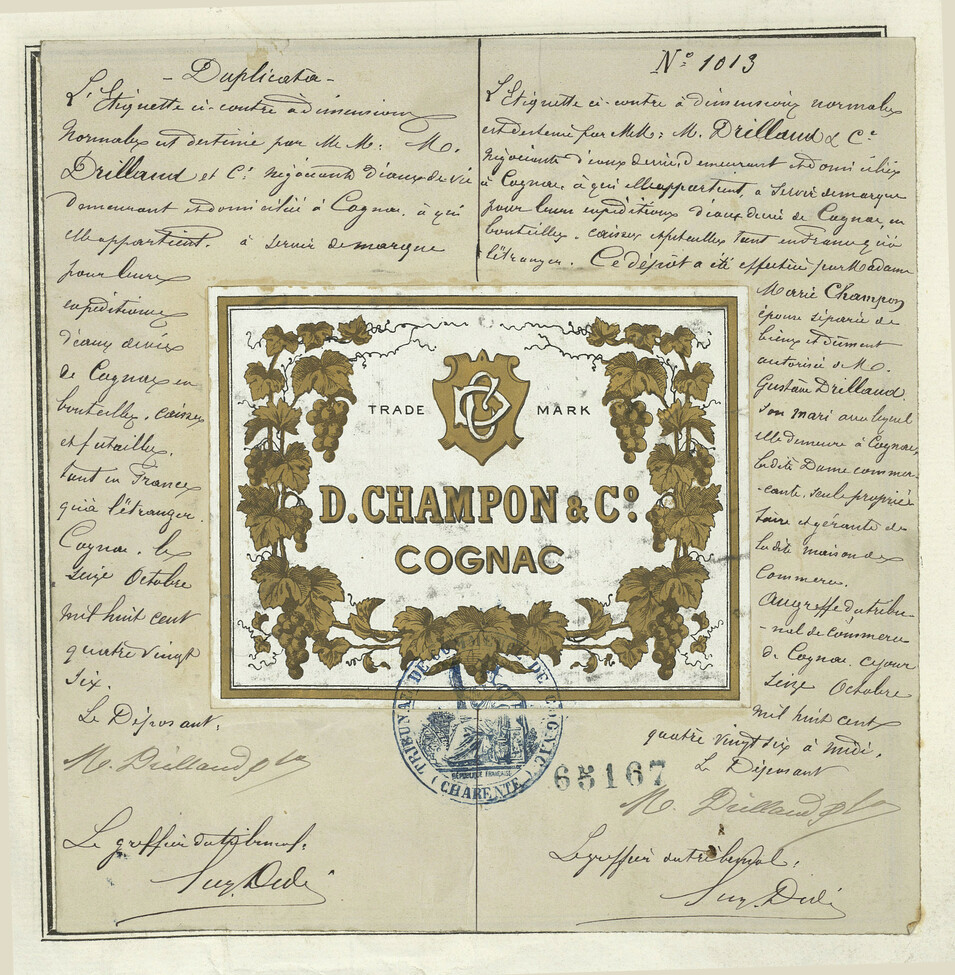 - Duplicata -
L'Etiquette ci-contre à dimensions
normales est destinée par M.M: M.
Drilland et Cie négociants d'eaux de vie
demeurant et domiciliés à Cognac. à qui
elle appartient. à servir de marque
pour leurs
expéditions
d'eaux de vie
de Cognac en
bouteilles, caisses
et futailles,
tant en France
qu'à l'étranger.
Cognac. le
seize Octobre
mil huit cent
quatre vingt
six.
Le Déposant,
M. Drilland & Co
Le greffier du tribunal:
N° 1013
L'Etiquette ci-contre à dimensions normales
est destinée par M.M: M. Drilland & Ce
négociants d'eaux de vie, demeurant et domiciliés
à Cognac, à qui elle appartient, à servir de marque
pour leurs expéditions d'eaux de vie de Cognac, en
bouteilles. caisses et futailles tant en France qu'à
l'étranger. Ce dépôt a été effectué par Madame
Marie Champon
épouse séparée de
biens et dûment
autorisée de M.
Gustave Drilland
son mari avec lequel
elle demeure à Cognac,
ladite Dame commer-
-çante, seule proprié
taire et gérante de
ladite maison de
Commerce.
Au greffe du tribu-
-nal de commerce
de Cognac. ce jour
seize Octobre
mil huit cent
quatre vingt six à midi.
Le Déposant
M. Drilland & Co
Le greffier du tribunal:
TRADE MARK
D. CHAMPON & Cº.
COGNAC
TRIBUNAL DE COMMERCE DE COGNAC
RÉPUBLIQUE FRANÇAISE
(CHARENTE)
65167